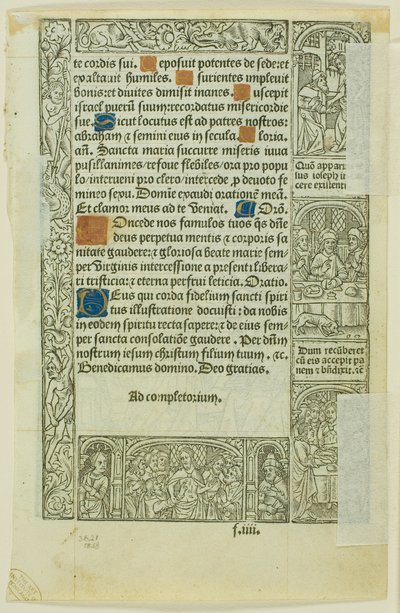 te cordis sui. Deposuit potentes de sede: et
exaltauit humiles. Esurientes impleuit
bonis: et diuites dimisit inanes. Suscepit
israel puerū suum: recordatus misericordie
sue. Sicut locutus est ad patres nostros:
abraham & semini eius in secula. Gloria.
añ. Sancta maria succurre miseris iuua
pusillanimes/ refoue flebiles/ ora pro popu
lo/ interueni pro clero/ intercede ꝓ deuoto fe
mineo sexu. Domīe exaudi orationē meā.
Et clamor meus ad te veniat. Orō.
Concede nos famulos tuos qs dñe
deus perpetua mentis & corporis sa
nitate gaudere: & gloriosa beate marie sem
per virginis intercessione a presenti libera-
ri tristicia: & eterna perfrui leticia. Oratio.
Deus qui corda fidelium sancti spiri
tus illustratione docuisti: da nobis
in eodem spiritu recta sapere: & de eius sem-
per sancta consolatiōe gaudere. Per dñm
nostrum iesum christum filium tuum. &c.
Benedicamus domino. Deo gratias.
Ad completorium.
f.iiii.
Quō appar
lus ioseph
cere exilenti
Dum recūberet
cū eis accepit pa
nem & bñdixit. &c